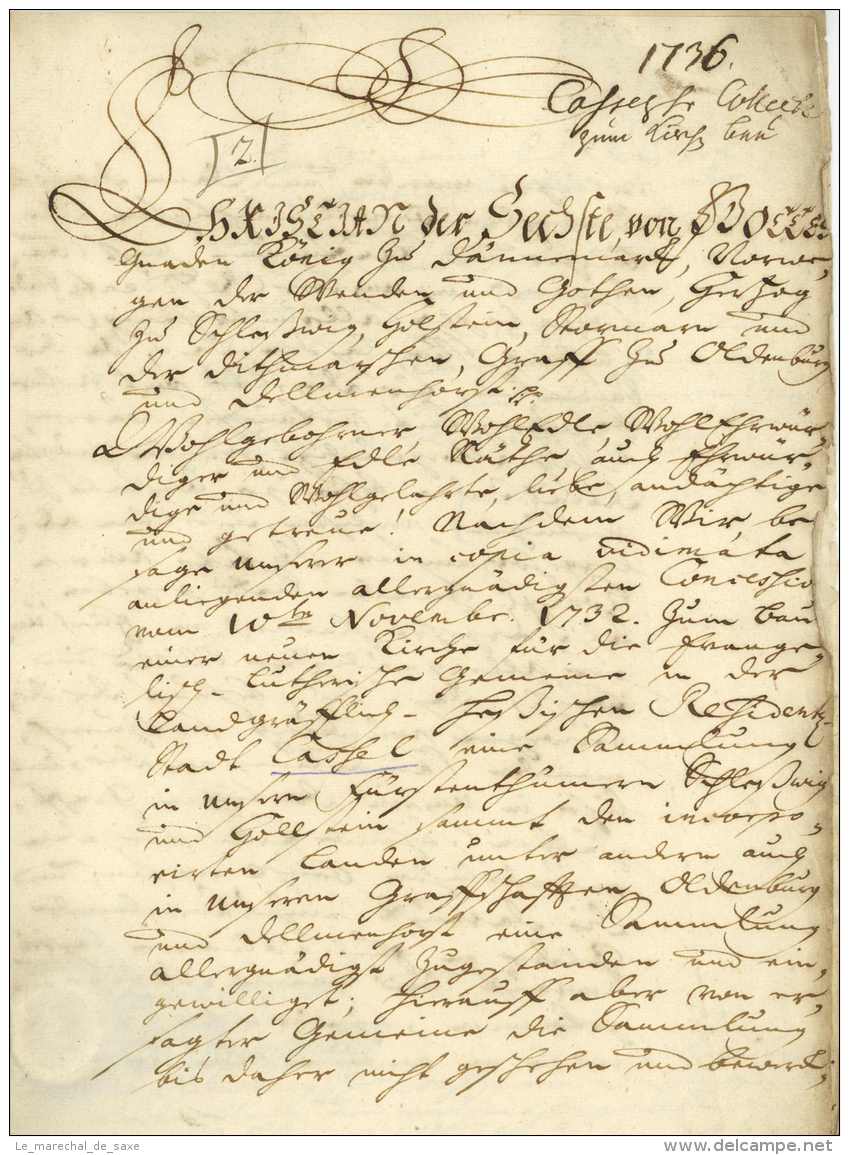 1736.
Casselsche Collecte
zum Kirch bau
2.
CHRISTIAN der Sechste, von GOTTES
Gnaden König zu Dännemarck, Norwe-
gen der Wenden und Gothen, Hertzog
zu Schleßwig, Holstein, Stormarn und
der Dithmarschen, Graff zu Oldenburg
und Dellmenhorst pp.
Wohlgebohrner, WohlEdle, WohlEhrwür-
diger und Edle Räthe, auch Ehrwür-
dige und Wohlgelahrte, liebe, andächtige
und getreue! Nachdem Wir be
sage unserer in copia vidimata
anliegenden allergnädigsten Concession
vom 10ten Novembr. 1732. zum bau
einer neuen Kirche für die Evange-
lisch-Lutherische Gemeine in der
Landgräfflich-Heßischen Residentz-
Stadt Cassel eine Sammlung
in unsern Fürstenthümern Schleßwig
und Hollstein sammt den incorpo-
rirten Landen unter andern auch
in unseren Graffschafften Oldenburg
und Dellmenhorst eine Sammlung
allergnädigst zugestanden und ein-
gewilliget; hierauff aber von er-
sagter Gemeine die Sammlung
bis daher nicht geschehen und
Le_marechal_de_saxe
delcampe.net